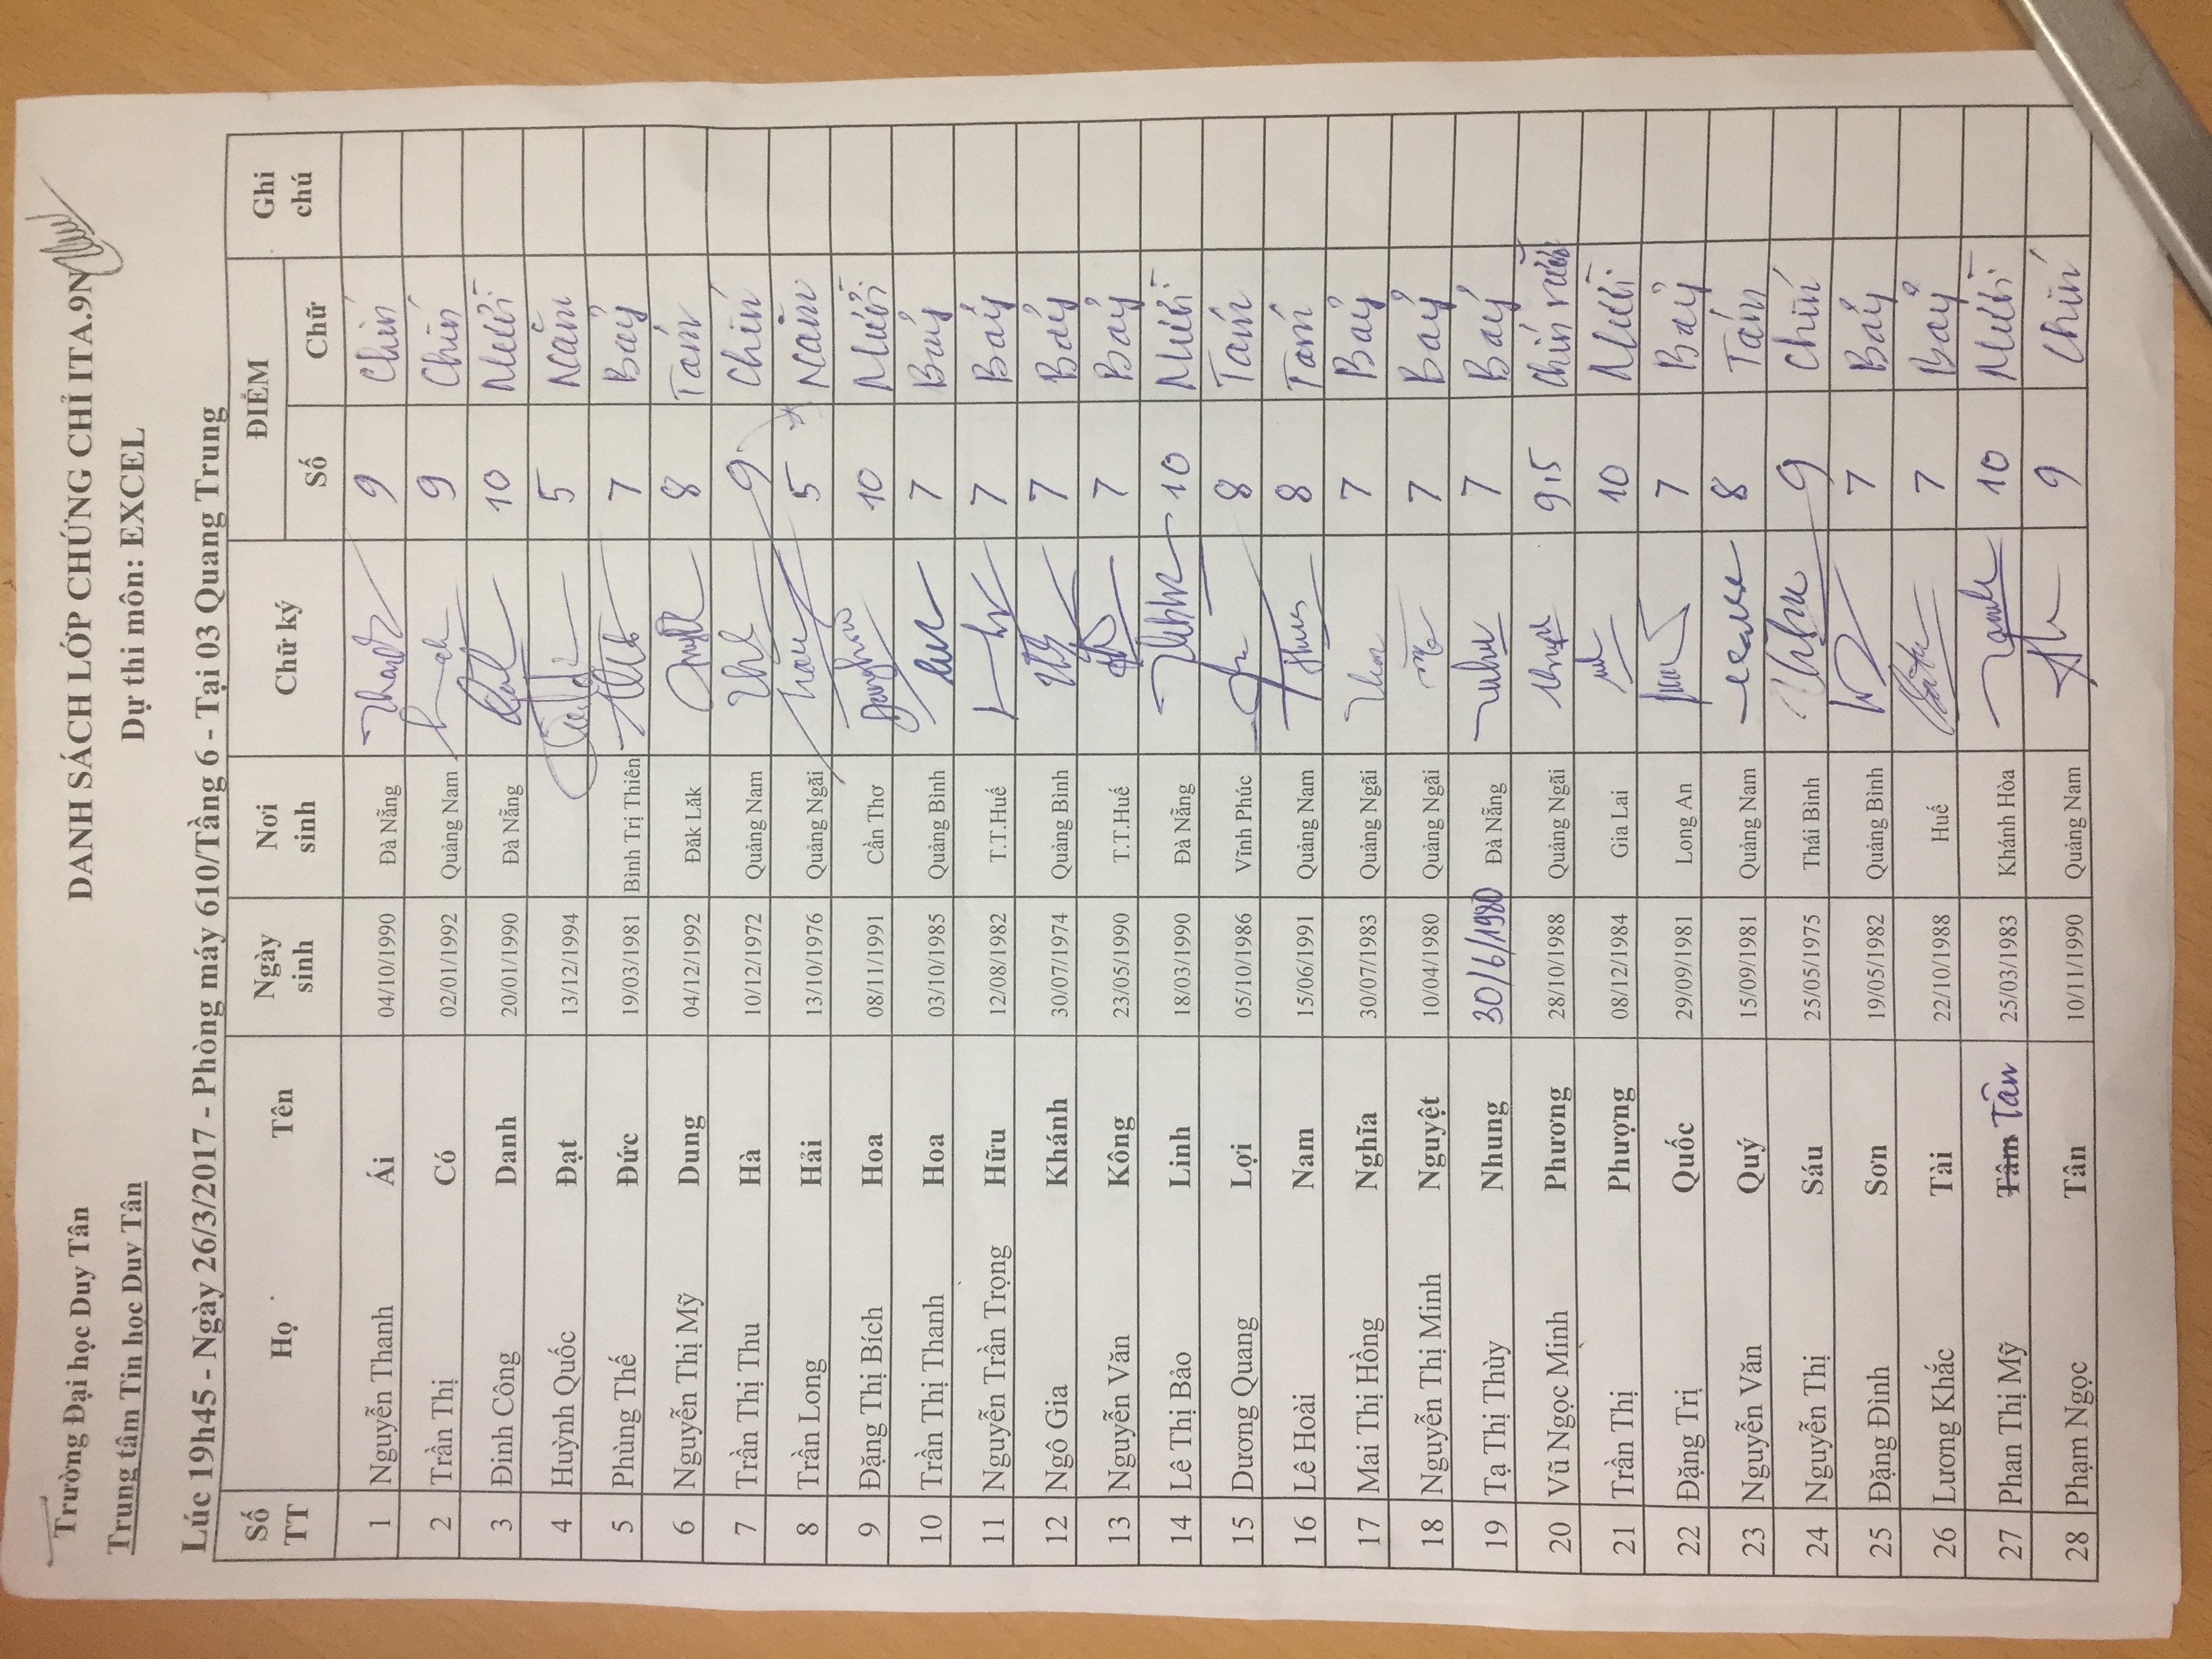 Trường Đại học Duy Tân
Trung tâm Tin học Duy Tân
DANH SÁCH LỚP CHỨNG CHỈ ITA.9N
Dự thi môn: EXCEL
Lúc 19h45 - Ngày 26/3/2017 - Phòng máy 610/Tầng 6 - Tại 03 Quang Trung
Số TT Họ Tên Ngày sinh Nơi sinh Chữ ký ĐIỂM Ghi chú
Số Chữ
1 Nguyễn Thanh Ái 04/10/1990 Đà Nẵng 9 Chín
2 Trần Thị Có 02/01/1992 Quảng Nam 9 Chín
3 Đinh Công Danh 20/01/1990 Đà Nẵng 10 Mười
4 Huỳnh Quốc Đạt 13/12/1994 5 Năm
5 Phùng Thế Đức 19/03/1981 Bình Trị Thiên 7 Bảy
6 Nguyễn Thị Mỹ Dung 04/12/1992 Đăk Lăk 8 Tám
7 Trần Thị Thu Hà 10/12/1972 Quảng Nam 9 Chín
8 Trần Long Hải 13/10/1976 Quảng Ngãi 5 Năm
9 Đặng Thị Bích Hoa 08/11/1991 Cần Thơ 10 Mười
10 Trần Thị Thanh Hoa 03/10/1985 Quảng Bình 7 Bảy
11 Nguyễn Trần Trọng Hữu 12/08/1982 T.T.Huế 7 Bảy
12 Ngô Gia Khánh 30/07/1974 Quảng Bình 7 Bảy
13 Nguyễn Văn Kông 23/05/1990 T.T.Huế 7 Bảy
14 Lê Thị Bảo Linh 18/03/1990 Đà Nẵng 10 Mười
15 Dương Quang Lợi 05/10/1986 Vĩnh Phúc 8 Tám
16 Lê Hoài Nam 15/06/1991 Quảng Nam 8 Tám
17 Mai Thị Hồng Nghĩa 30/07/1983 Quảng Ngãi 7 Bảy
18 Nguyễn Thị Minh Nguyệt 10/04/1980 Quảng Ngãi 7 Bảy
19 Tạ Thị Thùy Nhung 30/6/1980 Đà Nẵng 7 Bảy
20 Vũ Ngọc Minh Phương 28/10/1988 Quảng Ngãi 9,5 Chín rưỡi
21 Trần Thị Phượng 08/12/1984 Gia Lai 10 Mười
22 Đặng Trị Quốc 29/09/1981 Long An 7 Bảy
23 Nguyễn Văn Quý 15/09/1981 Quảng Nam 8 Tám
24 Nguyễn Thị Sáu 25/05/1975 Thái Bình 9 Chín
25 Đặng Đình Sơn 19/05/1982 Quảng Bình 7 Bảy
26 Lương Khắc Tài 22/10/1988 Huế 7 Bảy
27 Phan Thị Mỹ Tâm Tân 25/03/1983 Khánh Hòa 10 Mười
28 Phạm Ngọc Tân 10/11/1990 Quảng Nam 9 Chín